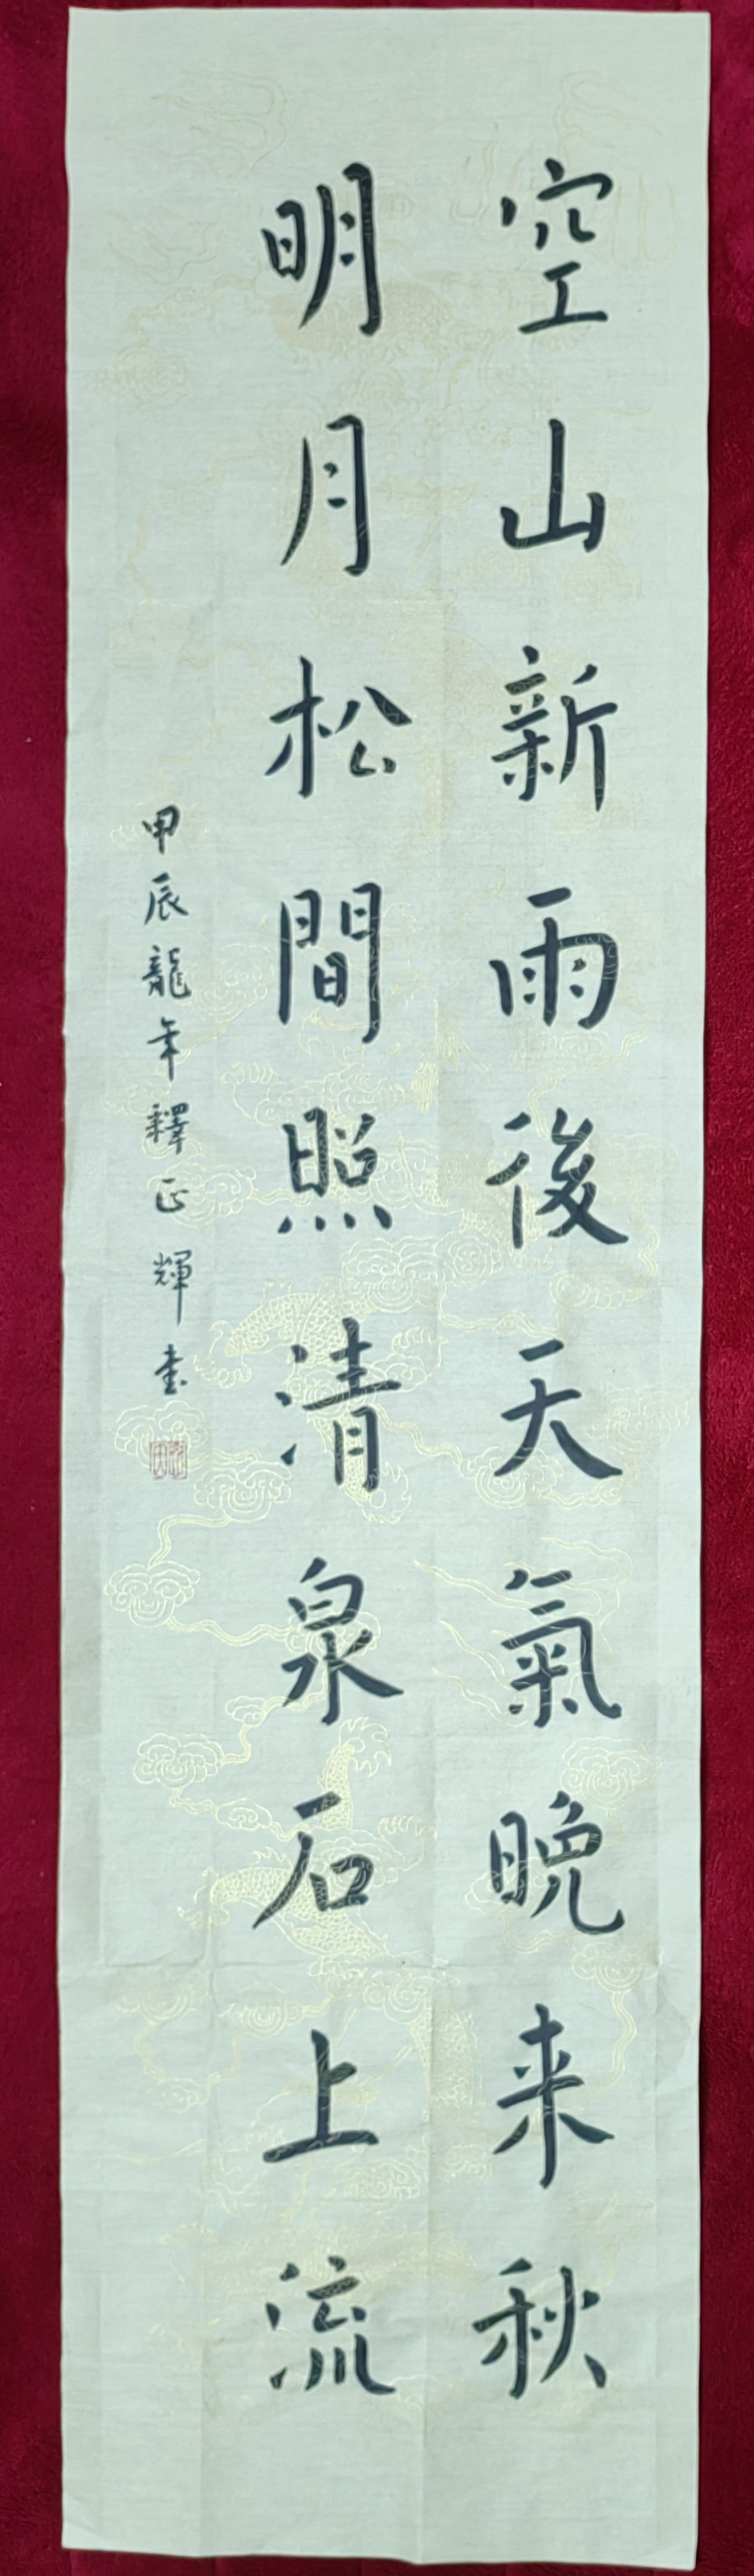 空山新雨後天氣晚来秋
明月松間照清泉石上流
甲辰龍年釋正輝书